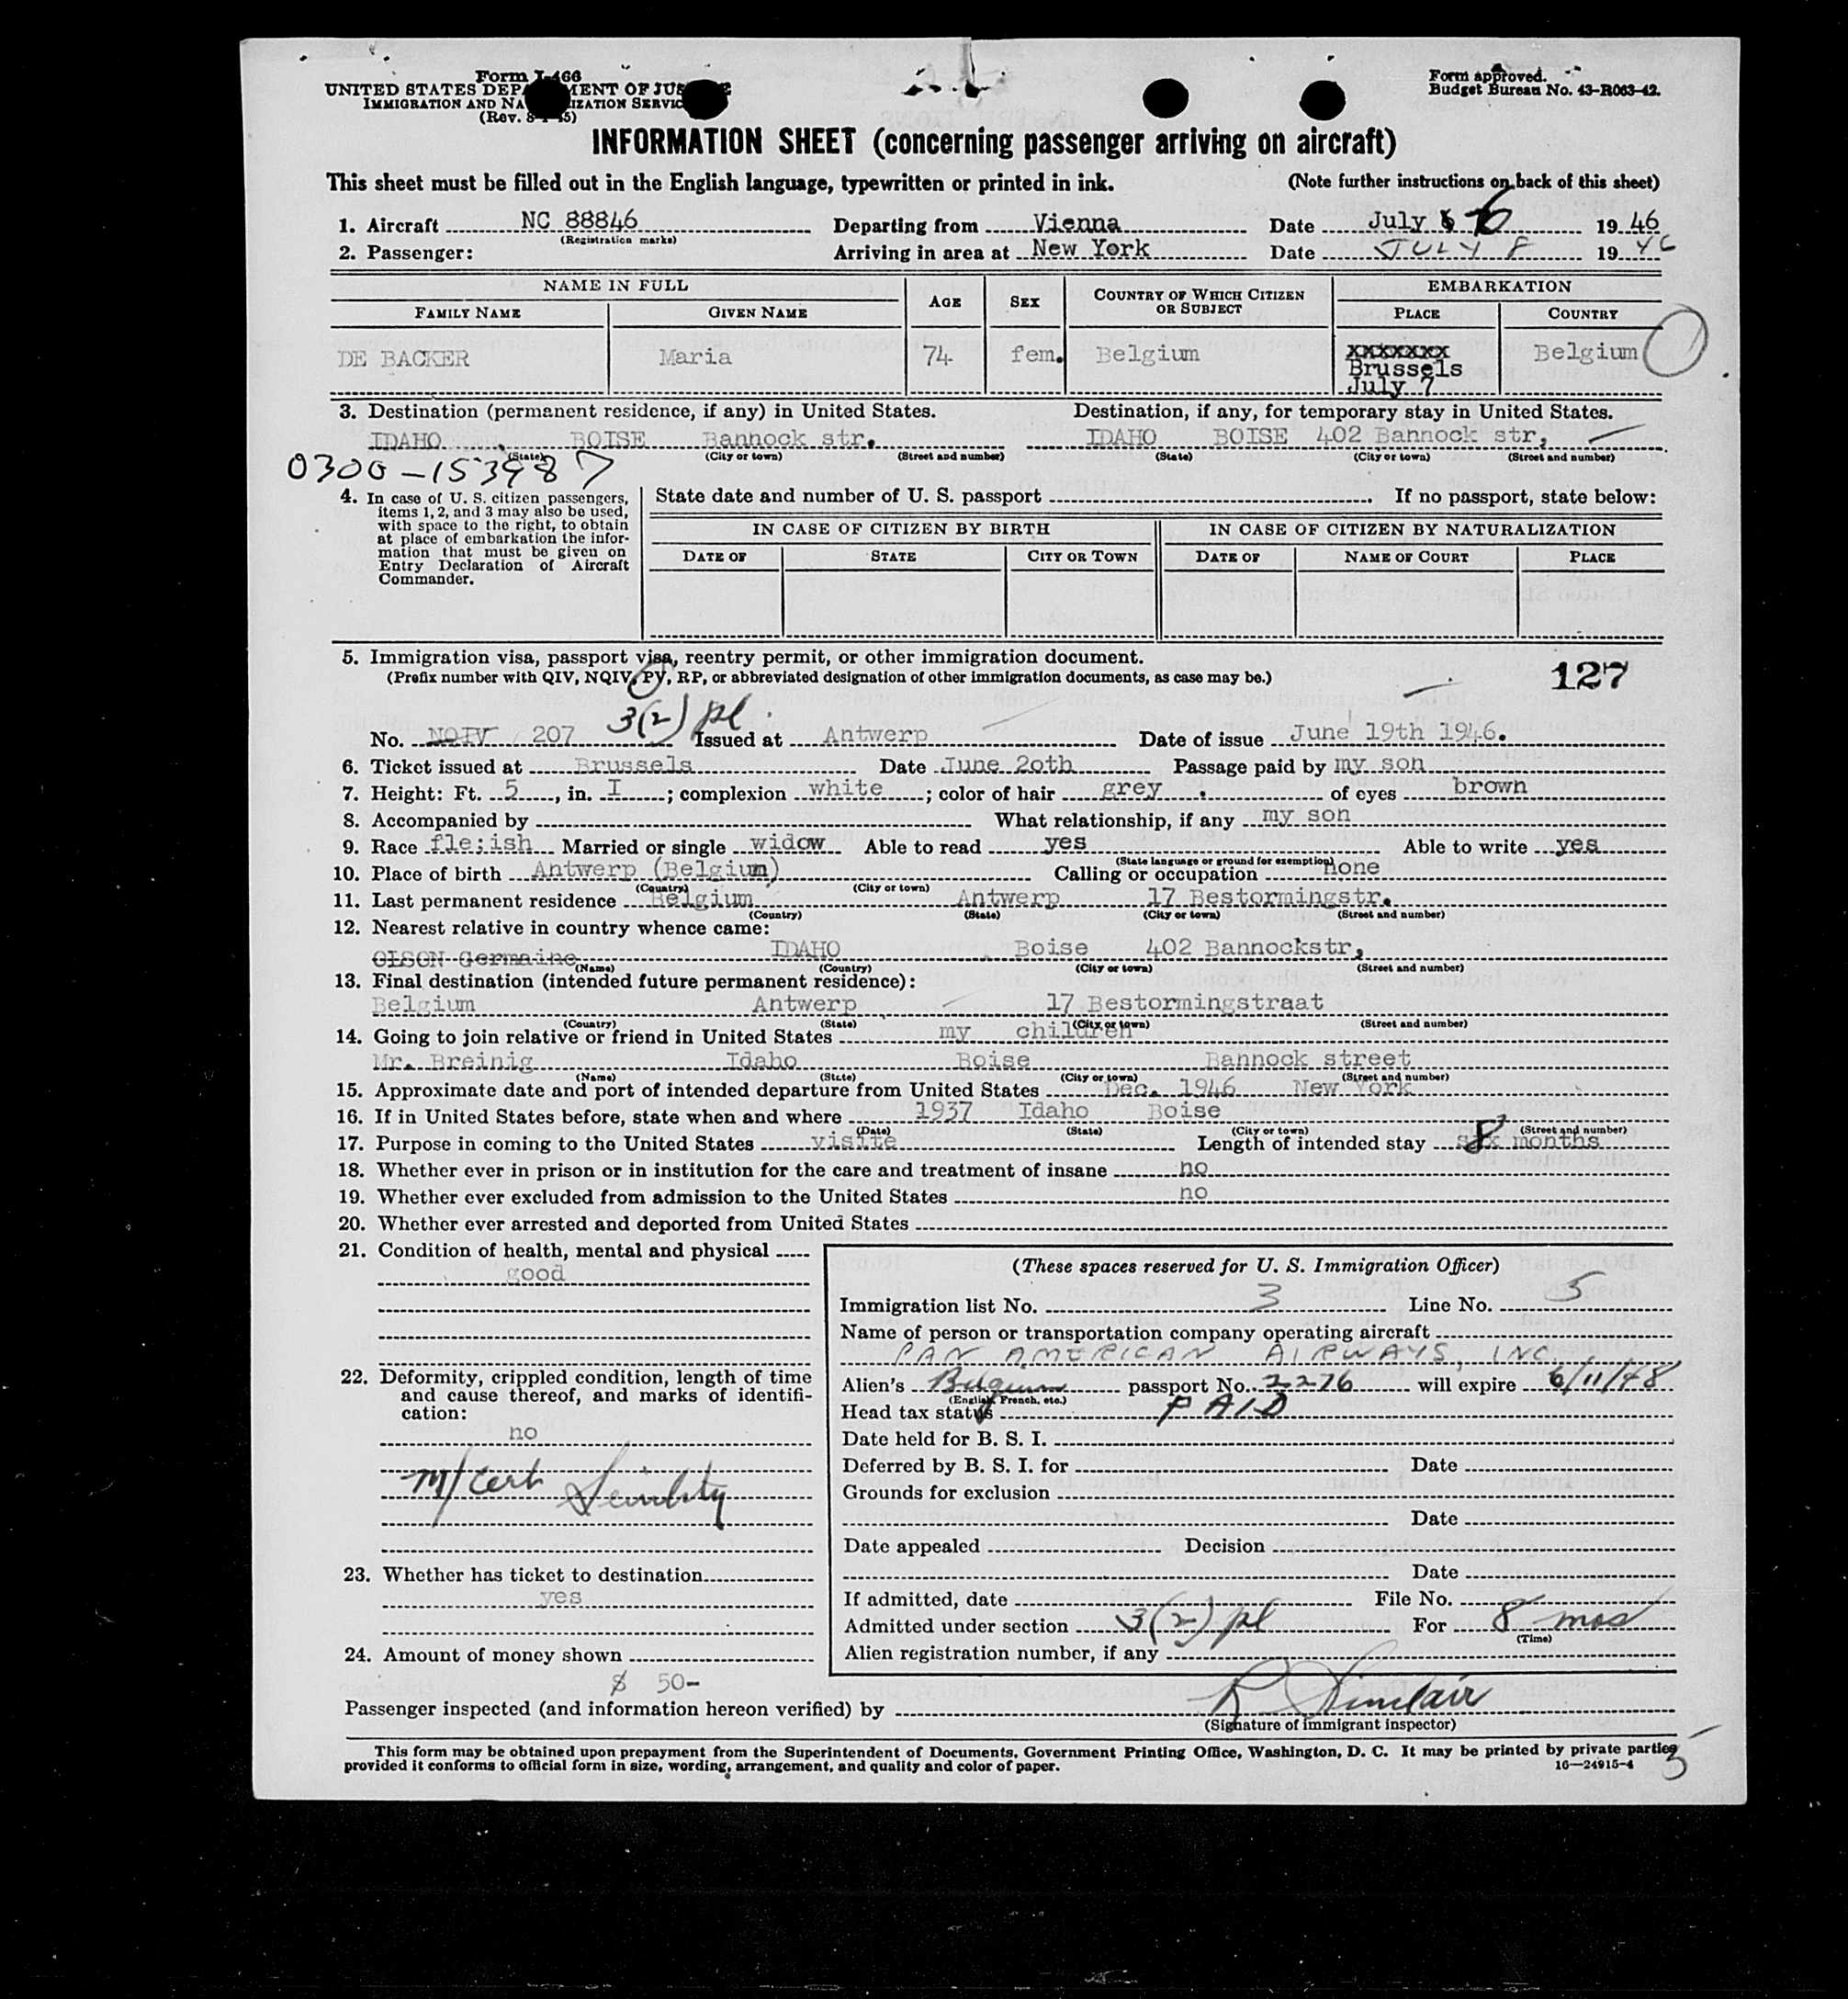 Form I-466
UNITED STATES DEPARTMENT OF JUSTICE
IMMIGRATION AND NATURALIZATION SERVICE
(Rev. 8-1-45)
Form approved.
Budget Bureau No. 43-R063-42.
INFORMATION SHEET (concerning passenger arriving on aircraft)
This sheet must be filled out in the English language, typewritten or printed in ink. (Note further instructions on back of this sheet)
1. Aircraft NC 88846 Departing from Vienna Date July 6 1946
(Registration marks)
2. Passenger: Arriving in area at New York Date JULY 8 1946
NAME IN FULL AGE SEX COUNTRY OF WHICH CITIZEN OR SUBJECT EMBARKATION
FAMILY NAME GIVEN NAME PLACE COUNTRY
DE BACKER Maria 74 fem. Belgium xxxxxxx Belgium
Brussels
July 7
3. Destination (permanent residence, if any) in United States. Destination, if any, for temporary stay in United States.
IDAHO , BOISE Bannock str. IDAHO BOISE 402 Bannock str,
(State) (City or town) (Street and number) (State) (City or town) (Street and number)
0300-153987
4. In case of U. S. citizen passengers, items 1, 2, and 3 may also be used, with space to the right, to obtain at place of embarkation the information that must be given on Entry Declaration of Aircraft Commander.
State date and number of U. S. passport . If no passport, state below:
IN CASE OF CITIZEN BY BIRTH IN CASE OF CITIZEN BY NATURALIZATION
DATE OF STATE CITY OR TOWN DATE OF NAME OF COURT PLACE
5. Immigration visa, passport visa, reentry permit, or other immigration document.
(Prefix number with QIV, NQIV, PV, RP, or abbreviated designation of other immigration documents, as case may be.)
127
3(2) pl
No. NQIV 207 Issued at Antwerp Date of issue June 19th 1946.
6. Ticket issued at Brussels Date June 2oth Passage paid by my son
7. Height: Ft. 5, in. I; complexion white; color of hair grey . of eyes brown
8. Accompanied by What relationship, if any my son
9. Race fle;ish Married or single widow Able to read yes Able to write yes
(State language or ground for exemption)
10. Place of birth Antwerp (Belgium) Calling or occupation none
(Country) (City or town)
11. Last permanent residence Belgium Antwerp 17 Bestormingstr.
(Country) (State) (City or town) (Street and number)
12. Nearest relative in country whence came:
OLSON Germaine IDAHO Boise 402 Bannockstr,
(Name) (Country) (City or town) (Street and number)
13. Final destination (intended future permanent residence):
Belgium Antwerp 17 Bestormingstraat
(Country) (State) (City or town) (Street and number)
14. Going to join relative or friend in United States my children
Mr. Breinig Idaho Boise Bannock street
(Name) (State) (City or town) (Street and number)
15. Approximate date and port of intended departure from United States Dec. 1946 New York
16. If in United States before, state when and where 1937 Idaho Boise
(Date) (State) (City or town) (Street and number)
17. Purpose in coming to the United States visite Length of intended stay six 8 months
18. Whether ever in prison or in institution for the care and treatment of insane no
19. Whether ever excluded from admission to the United States no
20. Whether ever arrested and deported from United States
21. Condition of health, mental and physical
good
22. Deformity, crippled condition, length of time and cause thereof, and marks of identification:
no
M/Cert
23. Whether has ticket to destination
yes
24. Amount of money shown
$ 50-
(These spaces reserved for U. S. Immigration Officer)
Immigration list No. 3 Line No. 5
Name of person or transportation company operating aircraft
PAN AMERICAN AIRWAYS, INC
Alien's Belgium passport No. 2276 will expire 6/11/48
(English, French, etc.)
Head tax status PAID
Date held for B. S. I.
Deferred by B. S. I. for Date
Grounds for exclusion
Date
Date appealed Decision
Date
If admitted, date File No.
Admitted under section 3(2) pl For 8 mos
(Time)
Alien registration number, if any
Passenger inspected (and information hereon verified) by R Sinclair
(Signature of immigrant inspector)
This form may be obtained upon prepayment from the Superintendent of Documents, Government Printing Office, Washington, D. C. It may be printed by private parties
provided it conforms to official form in size, wording, arrangement, and quality and color of paper. 16—24915-4
5